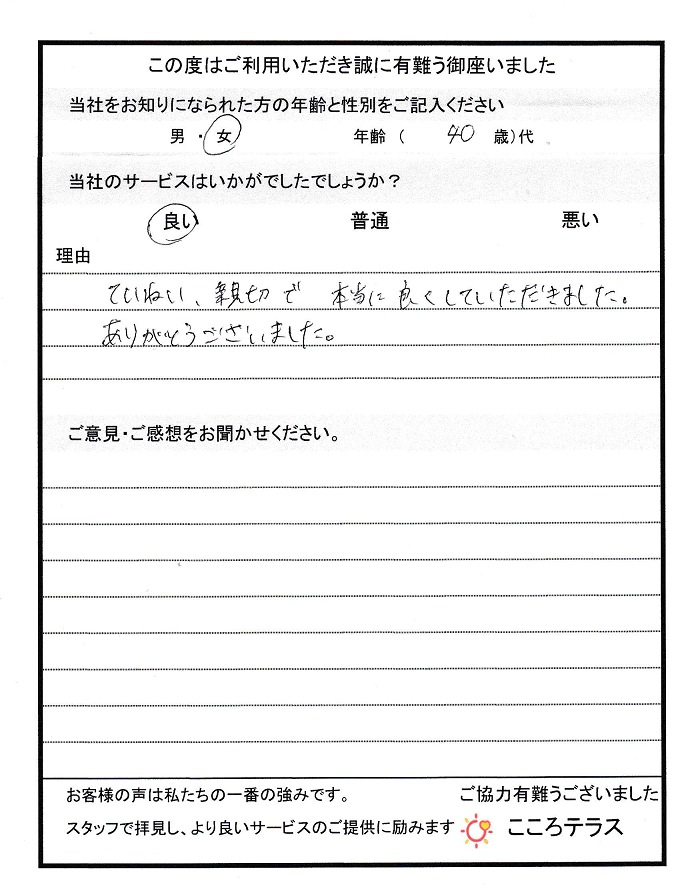 この度はご利用いただき誠に有難う御座いました
当社をお知りになられた方の年齢と性別をご記入ください
男 ・ 女 年齢 ( 40 歳)代
当社のサービスはいかがでしたでしょうか？
良い 普通 悪い
理由
ていねい、親切で 本当に良くしていただきました。
ありがとうございました。
ご意見・ご感想をお聞かせください。
お客様の声は私たちの一番の強みです。 ご協力有難うございました
スタッフで拝見し、より良いサービスのご提供に励みます こころテラス